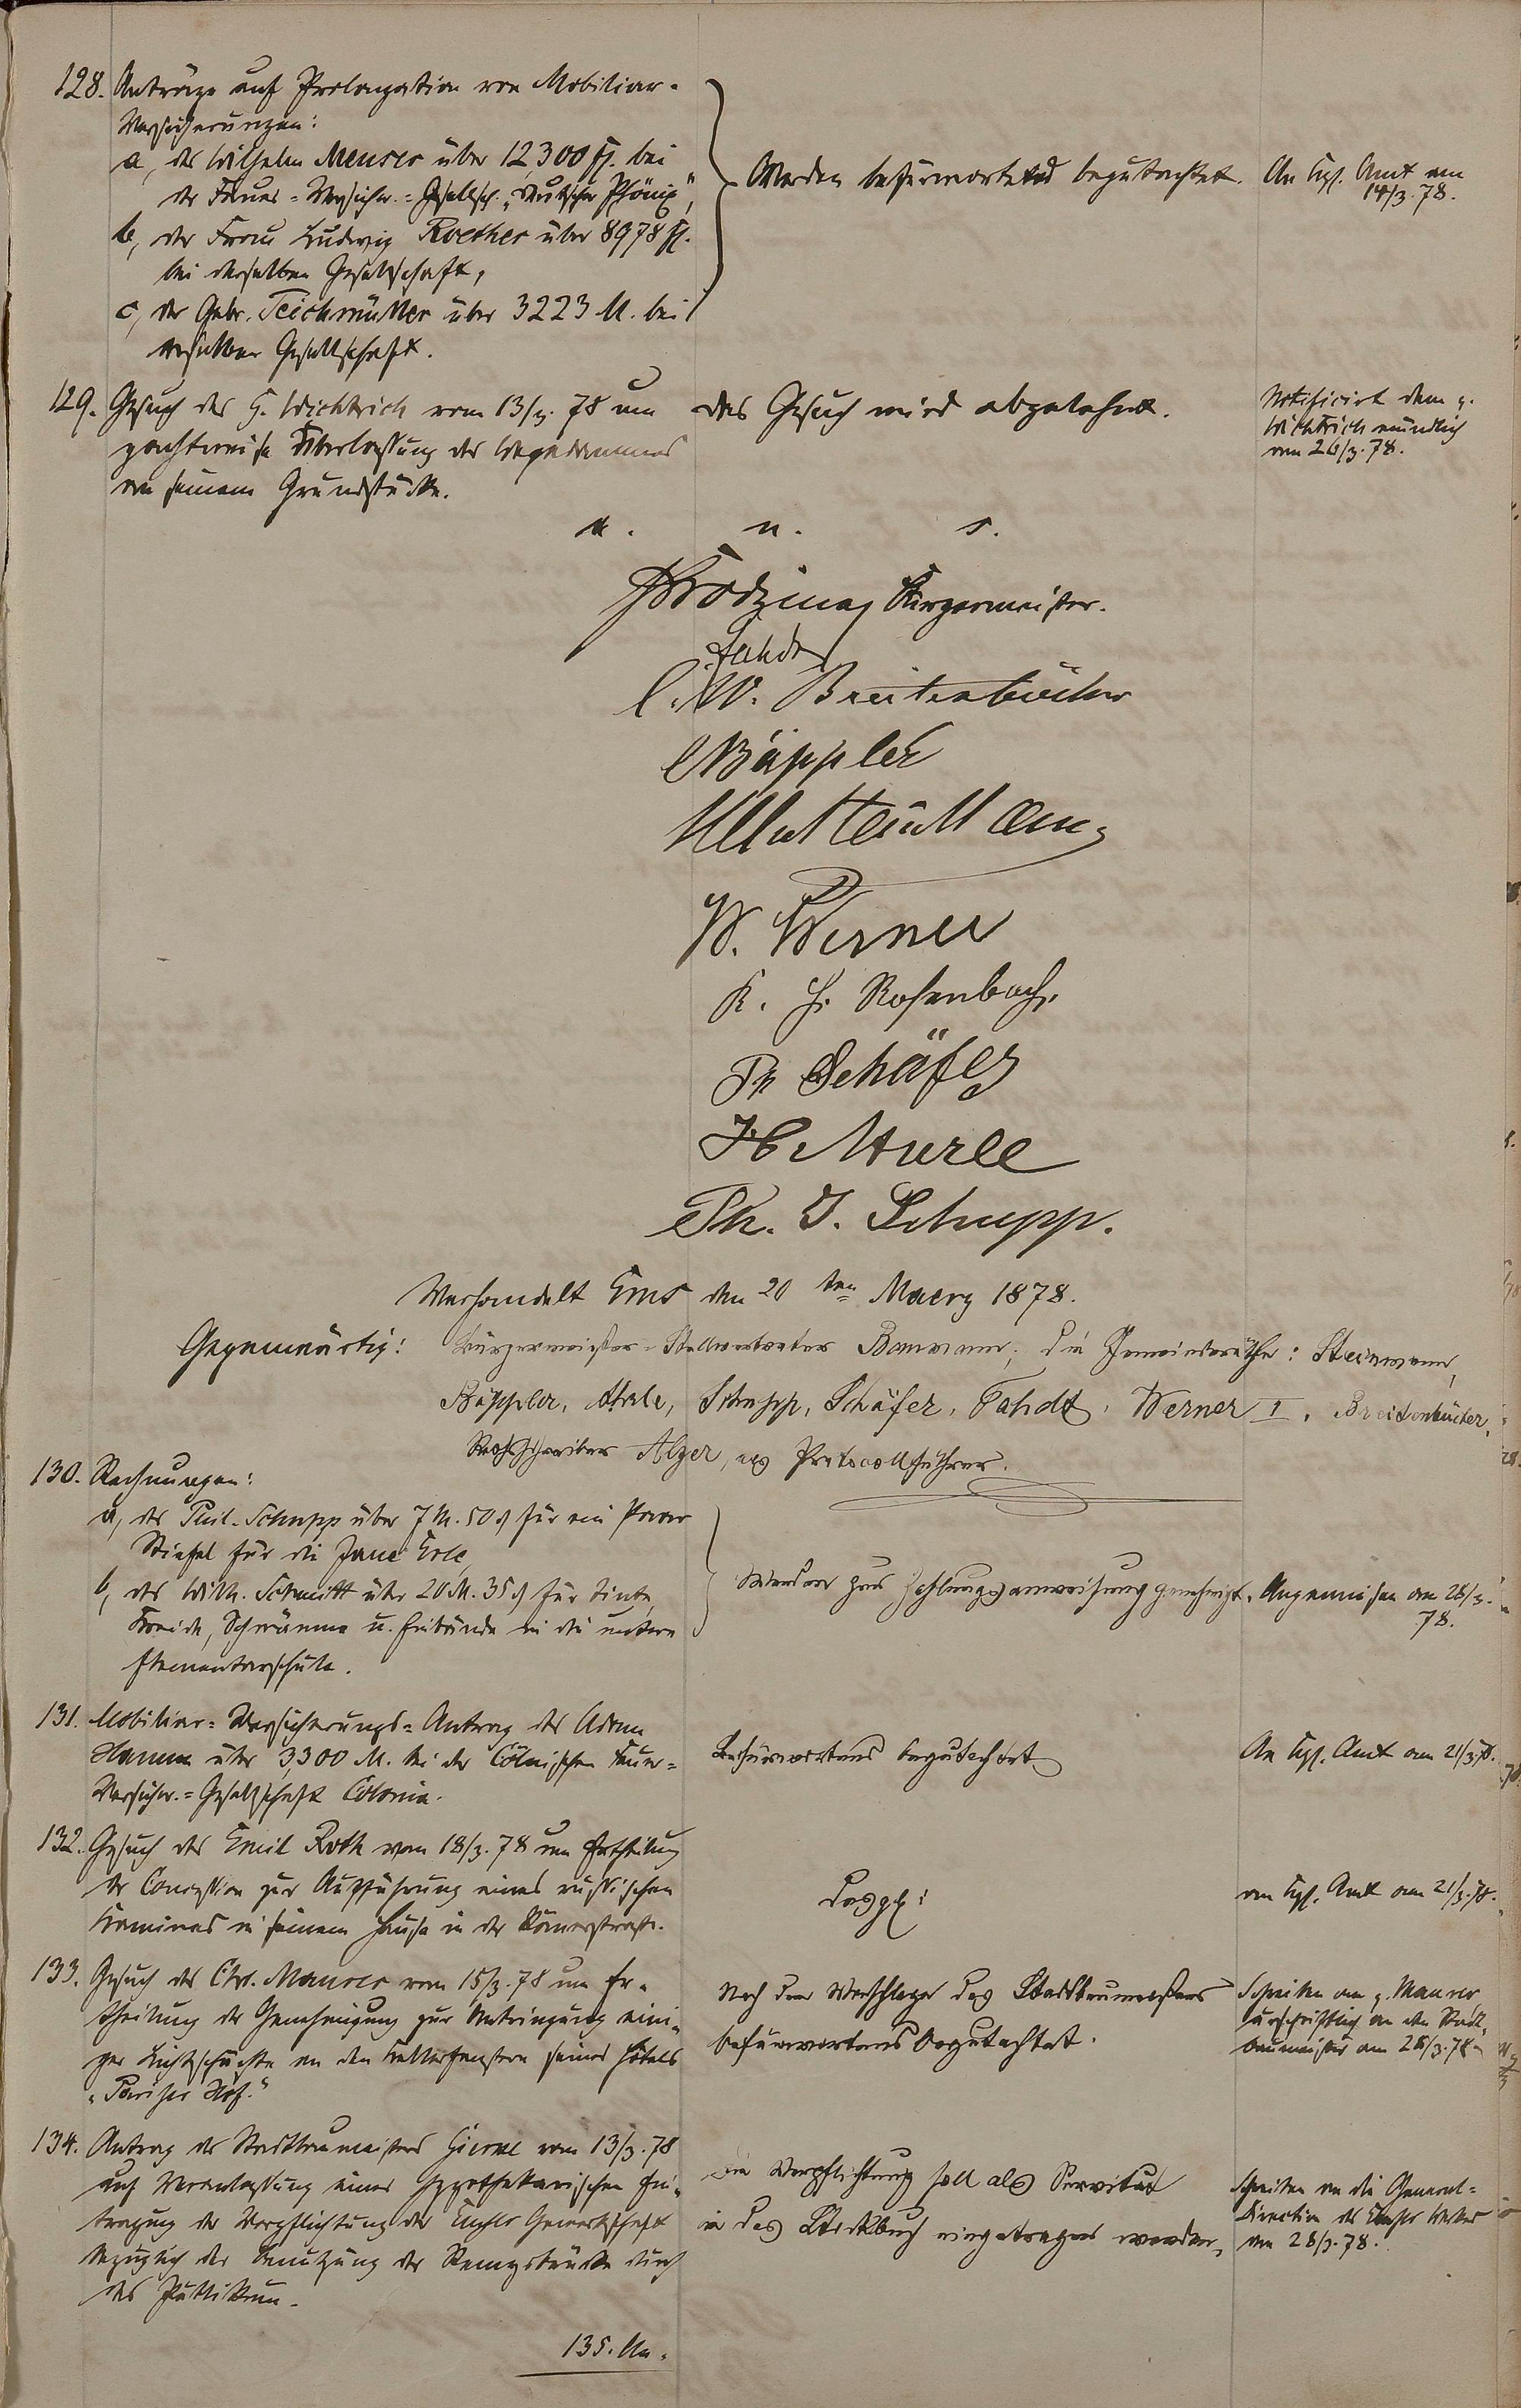 128. Anträge auf Prolongation von Mobiliar-
Versicherungen:
a, des Wilhelm Meuser über 12,300 fl. bei
der Feuer-Versicher.-Gesellsch. „Deutscher Phönix",
b, der Frau Ludwig Roether über 8978 fl.
bei derselben Gesellschaft,
c, der Gebr. Teichmüller über 3223 M. bei
derselben Gesellschaft.
Werden befürwortend begutachtet.
An Kgl. Amt am
14/3. 78.
129. Gesuch des H. Wichtrich vom 13/3. 78 um
pachtweise Überlassung des Wegedammes
an seinem Grundstücke.
Das Gesuch wird abgelehnt.
Notificirt dem p.
Wichtrich mündlich
am 26/3. 78.
a. u. s.
Bürgermeister.
Fahdt
C. W. Breitenbücher
Bäppler
W. Werner
K. H. Rosenbach.
Ph Schäfer
Ph. J. Schupp.
Verhandelt Ems den 20ten Maerz 1878.
Gegenwärtig: Bürgermeister-Stellvertreter Bonmann; die Gemeinderäthe: Steinmann,
Bäppler, Schupp, Schäfer, Fahdt, Werner I, Breitenbücher,
Rathsschreiber Alzer, als Protocollführer.
130. Rechnungen:
a, des Phil. Schupp über 7 M. 50 ₰ für ein Paar
Stiefel für die
b, des Wilh. Schmitt über 20 M. 35 ₰ für Tinte,
Kreide, Schwämme u. Einbände in die untere
Elementarschule.
Werden zur Zahlungsanweisung genehmigt.
Angewiesen am 28/3.
78.
131. Mobiliar-Versicherungs-Antrag des Adam
Hamm über 3,300 M. bei der Cölnischen Feuer-
Versicher.-Gesellschaft Colonia.
Befürwortend begutachtet
An Kgl. Amt am 21/3. 78.
132. Gesuch des Emil Roth vom 18/3. 78 um Ertheilung
der Concession zur Aufführung eines russischen
Kamines in seinem Hause in der Römerstraße.
Desgl:
an Kgl. Amt am 21/3. 78.
133. Gesuch des Chr. Maurer vom 15/3. 78 um Er-
theilung der Genehmigung zur Anbringung eini-
ger Lichtschächte an den Kellerfenstern seines Hôtels
„Pariser Hof."
Nach dem Vorschlage des Stadtbaumeisters
befürwortend begutachtet.
Schreiben an p. Maurer
urschriftlich an den Stadt-
baumeister am 28/3. 78.
134. Antrag des Stadtbaumeisters vom 13/3. 78
auf Veranlassung einer hypothekarischen Ein-
tragung der Verpflichtung der Emser Gewerkschaft
bezüglich der Benutzung der Remybrücke durch
das Publikum.
Die Verpflichtung soll als Servitut
in das Stockbuch eingetragen werden.
Schreiben an die General-
Direction des Emser Werkes
am 28/3. 78.
135. An-